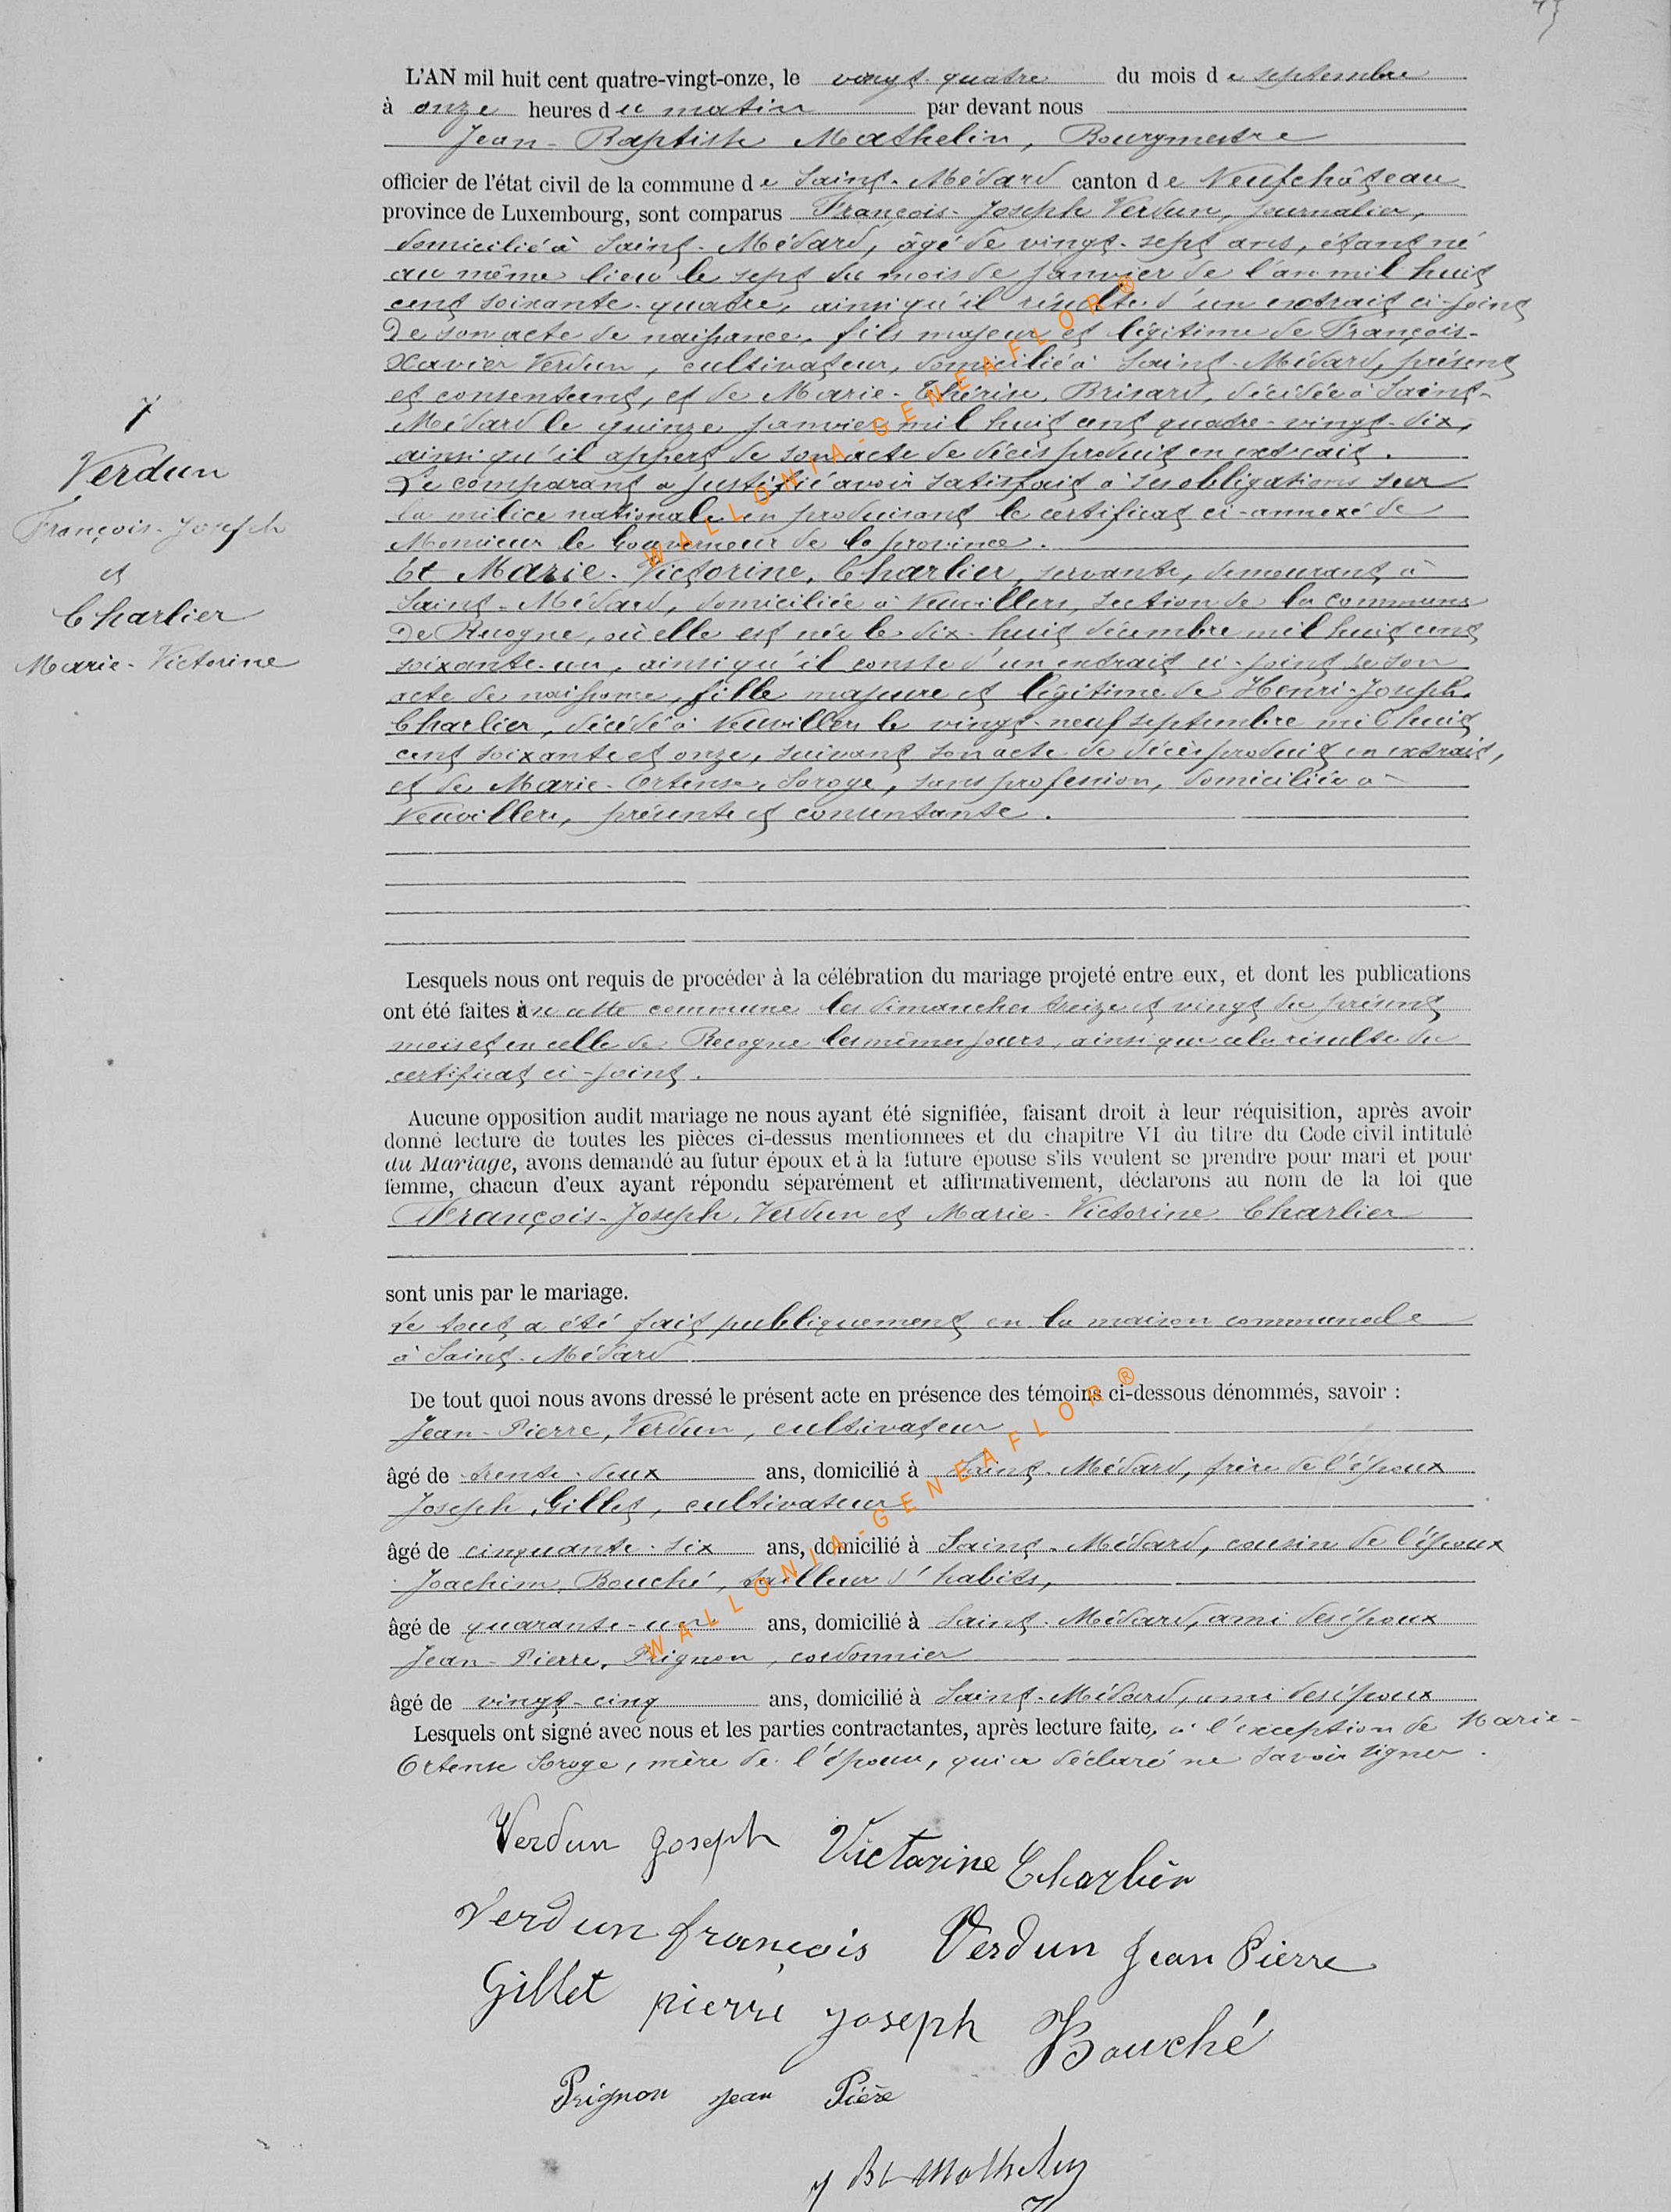 L'AN mil huit cent quatre-vingt-onze, le vingt-quatre du mois de septembre
à onze heures du matin par devant nous
Jean-Baptiste Mathelin, Bourgmestre
officier de l'état civil de la commune de Saint-Médard canton de Neufchâteau
province de Luxembourg, sont comparus François-Joseph Verdun, journalier,
domicilié à Saint-Médard, âgé de vingt-sept ans, étant né
au même lieu le sept du mois de janvier de l'an mil huit
cent soixante-quatre, ainsi qu'il résulte d'un extrait ci-joint
de son acte de naissance, fils majeur et légitime de François-
Xavier Verdun, cultivateur, domicilié à Saint-Médard, présent
et consentant, et de Marie-Thérèse Brisard, décédée à Saint-
Médard le quinze janvier mil huit cent quatre-vingt-dix,
ainsi qu'il appert de son acte de décès produit en extrait.
Le comparant a justifié avoir satisfait à ses obligations sur
la milice nationale en produisant le certificat ci-annexé de
Monsieur le Gouverneur de la province.
Et Marie-Victorine, Charlier, servante, demeurant à
Saint-Médard, domiciliée à Neuvillers, section de la commune
de Recogne, où elle est née le dix-huit décembre mil huit cent
soixante-un, ainsi qu'il conste d'un extrait ci-joint de son
acte de naissance, fille majeure et légitime de Henri-Joseph
Charlier, décédé à Neuvillers le vingt-neuf septembre mil huit
cent soixante et onze, suivant son acte de décès produit en extrait,
et de Marie-Ortense, Soroge, sans profession, domiciliée à
Neuvillers, présente et consentante.
7
Verdun
François-Joseph
et
Charlier
Marie-Victorine
Lesquels nous ont requis de procéder à la célébration du mariage projeté entre eux, et dont les publications
ont été faites en cette commune les dimanches treize et vingt du présent
mois et en celle de Recogne les mêmes jours, ainsi que cela résulte du
certificat ci-joint.
Aucune opposition audit mariage ne nous ayant été signifiée, faisant droit à leur réquisition, après avoir
donné lecture de toutes les pièces ci-dessus mentionnees et du chapitre VI du titre du Code civil intitulé
du Mariage, avons demandé au futur époux et à la future épouse s'ils veulent se prendre pour mari et pour
femme, chacun d'eux ayant répondu séparément et affirmativement, déclarons au nom de la loi que
François-Joseph, Verdun et Marie-Victorine Charlier
sont unis par le mariage.
Le tout a été fait publiquement en la maison communale
à Saint-Médard
De tout quoi nous avons dressé le présent acte en présence des témoins ci-dessous dénommés, savoir :
Jean-Pierre, Verdun, cultivateur
âgé de trente-deux ans, domicilié à Saint-Médard, frère de l'époux
Joseph, Gillet, cultivateur
âgé de cinquante-six ans, domicilié à Saint-Médard, cousin de l'époux
Joachim, Bouché, tailleur d'habits,
âgé de quarante-un ans, domicilié à Saint-Médard, ami des époux
Jean-Pierre, Prignon, cordonnier
âgé de vingt-cinq ans, domicilié à Saint-Médard, ami des époux
Lesquels ont signé avec nous et les parties contractantes, après lecture faite, à l'exception de Marie-
Ortense Soroge, mère de l'épouse, qui a déclaré ne savoir signer.
Verdun Joseph Victorine Charlier
Verdun françois Verdun Jean Pierre
Gillet pierre joseph Bouché
Prignon jean Pière
J Bte Mathelin
WALLONIA-GENEAFLOR®
WALLONIA-GENEAFLOR®